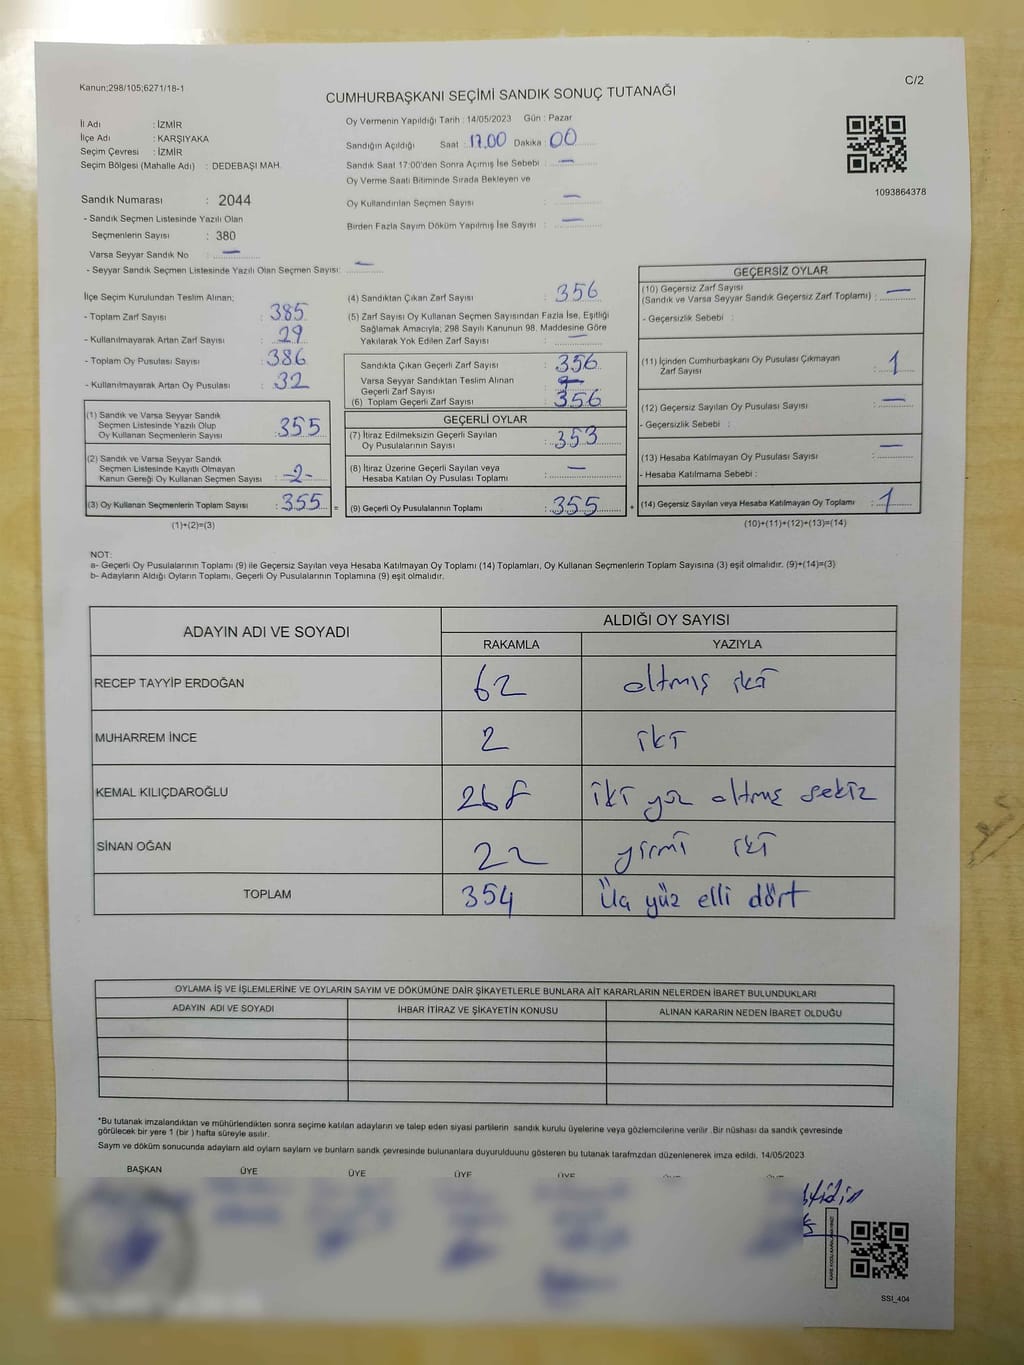 Kanun;298/105;6271/18-1
C/2
CUMHURBAŞKANI SEÇİMİ SANDIK SONUÇ TUTANAĞI
İl Adı : İZMİR
İlçe Adı : KARŞIYAKA
Seçim Çevresi : İZMİR
Seçim Bölgesi (Mahalle Adı) : DEDEBAŞI MAH.
Sandık Numarası : 2044
- Sandık Seçmen Listesinde Yazılı Olan
Seçmenlerin Sayısı : 380
Varsa Seyyar Sandık No : —
- Seyyar Sandık Seçmen Listesinde Yazılı Olan Seçmen Sayısı: —
Oy Vermenin Yapıldığı Tarih : 14/05/2023 Gün : Pazar
Sandığın Açıldığı Saat : 17.00 Dakika : 00
Sandık Saat 17:00'den Sonra Açımış İse Sebebi : —
Oy Verme Saati Bitiminde Sırada Bekleyen ve
Oy Kullandırılan Seçmen Sayısı : —
Birden Fazla Sayım Döküm Yapılmış İse Sayısı : —
1093864378
İlçe Seçim Kurulundan Teslim Alınan;
- Toplam Zarf Sayısı : 385
- Kullanılmayarak Artan Zarf Sayısı : 29
- Toplam Oy Pusulası Sayısı : 386
- Kullanılmayarak Artan Oy Pusulası : 32
(1) Sandık ve Varsa Seyyar Sandık
Seçmen Listesinde Yazılı Olup
Oy Kullanan Seçmenlerin Sayısı : 355
(2) Sandık ve Varsa Seyyar Sandık
Seçmen Listesinde Kayıtlı Olmayan
Kanun Gereği Oy Kullanan Seçmen Sayısı : -2-
(3) Oy Kullanan Seçmenlerin Toplam Sayısı : 355 =
(1)+(2)=(3)
(4) Sandıktan Çıkan Zarf Sayısı : 356
(5) Zarf Sayısı Oy Kullanan Seçmen Sayısından Fazla İse, Eşitliği
Sağlamak Amacıyla; 298 Sayılı Kanunun 98. Maddesine Göre
Yakılarak Yok Edilen Zarf Sayısı : —
Sandıkta Çıkan Geçerli Zarf Sayısı : 356
Varsa Seyyar Sandıktan Teslim Alınan
Geçerli Zarf Sayısı :
(6) Toplam Geçerli Zarf Sayısı : 356
GEÇERLİ OYLAR
(7) İtiraz Edilmeksizin Geçerli Sayılan
Oy Pusulalarının Sayısı : 353
(8) İtiraz Üzerine Geçerli Sayılan veya
Hesaba Katılan Oy Pusulası Toplamı : —
(9) Geçerli Oy Pusulalarının Toplamı : 355 +
GEÇERSİZ OYLAR
(10) Geçersiz Zarf Sayısı
(Sandık ve Varsa Seyyar Sandık Geçersiz Zarf Toplamı) : —
- Geçersizlik Sebebi :
(11) İçinden Cumhurbaşkanı Oy Pusulası Çıkmayan
Zarf Sayısı : 1
(12) Geçersiz Sayılan Oy Pusulası Sayısı : —
- Geçersizlik Sebebi :
(13) Hesaba Katılmayan Oy Pusulası Sayısı : —
- Hesaba Katılmama Sebebi :
(14) Geçersiz Sayılan veya Hesaba Katılmayan Oy Toplamı : 1
(10)+(11)+(12)+(13)=(14)
NOT:
a- Geçerli Oy Pusulalarının Toplamı (9) ile Geçersiz Sayılan veya Hesaba Katılmayan Oy Toplamı (14) Toplamları, Oy Kullanan Seçmenlerin Toplam Sayısına (3) eşit olmalıdır. (9)+(14)=(3)
b- Adayların Aldığı Oyların Toplamı, Geçerli Oy Pusulalarının Toplamına (9) eşit olmalıdır.
ADAYIN ADI VE SOYADI ALDIĞI OY SAYISI
RAKAMLA YAZIYLA
RECEP TAYYİP ERDOĞAN 62 altmış iki
MUHARREM İNCE 2 iki
KEMAL KILIÇDAROĞLU 268 iki yüz altmış sekiz
SİNAN OĞAN 22 yirmi iki
TOPLAM 354 Üç yüz elli dört
OYLAMA İŞ VE İŞLEMLERİNE VE OYLARIN SAYIM VE DÖKÜMÜNE DAİR ŞİKAYETLERLE BUNLARA AİT KARARLARIN NELERDEN İBARET BULUNDUKLARI
ADAYIN ADI VE SOYADI İHBAR İTİRAZ VE ŞİKAYETİN KONUSU ALINAN KARARIN NEDEN İBARET OLDUĞU
*Bu tutanak imzalandıktan ve mühürlendikten sonra seçime katılan adayların ve talep eden siyasi partilerin sandık kurulu üyelerine veya gözlemcilerine verilir .Bir nüshası da sandık çevresinde
görülecek bir yere 1 (bir ) hafta süreyle asılır.
Sayım ve döküm sonucunda adayların ald oyların sayların ve bunların sandık çevresinde bulunanlara duyurulduunu gösteren bu tutanak tarafmzdan düzenlenerek imza edildi. 14/05/2023
BAŞKAN ÜYE ÜYE ÜYE ÜYE
SSI_404